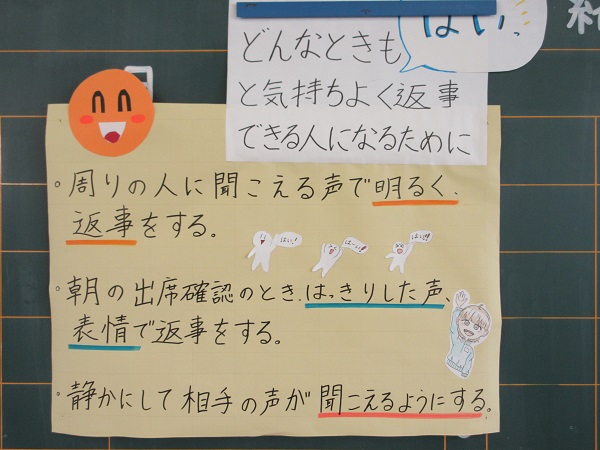 はいっ
どんなときも
と気持ちよく返事
できる人になるために
。周りの人に聞こえる声で明るく、
返事をする。
はい!
はーい!
はい!!
・朝の出席確認のとき、はっきりした声、
表情で返事をする。
・静かにして相手の声が聞こえるようにする。